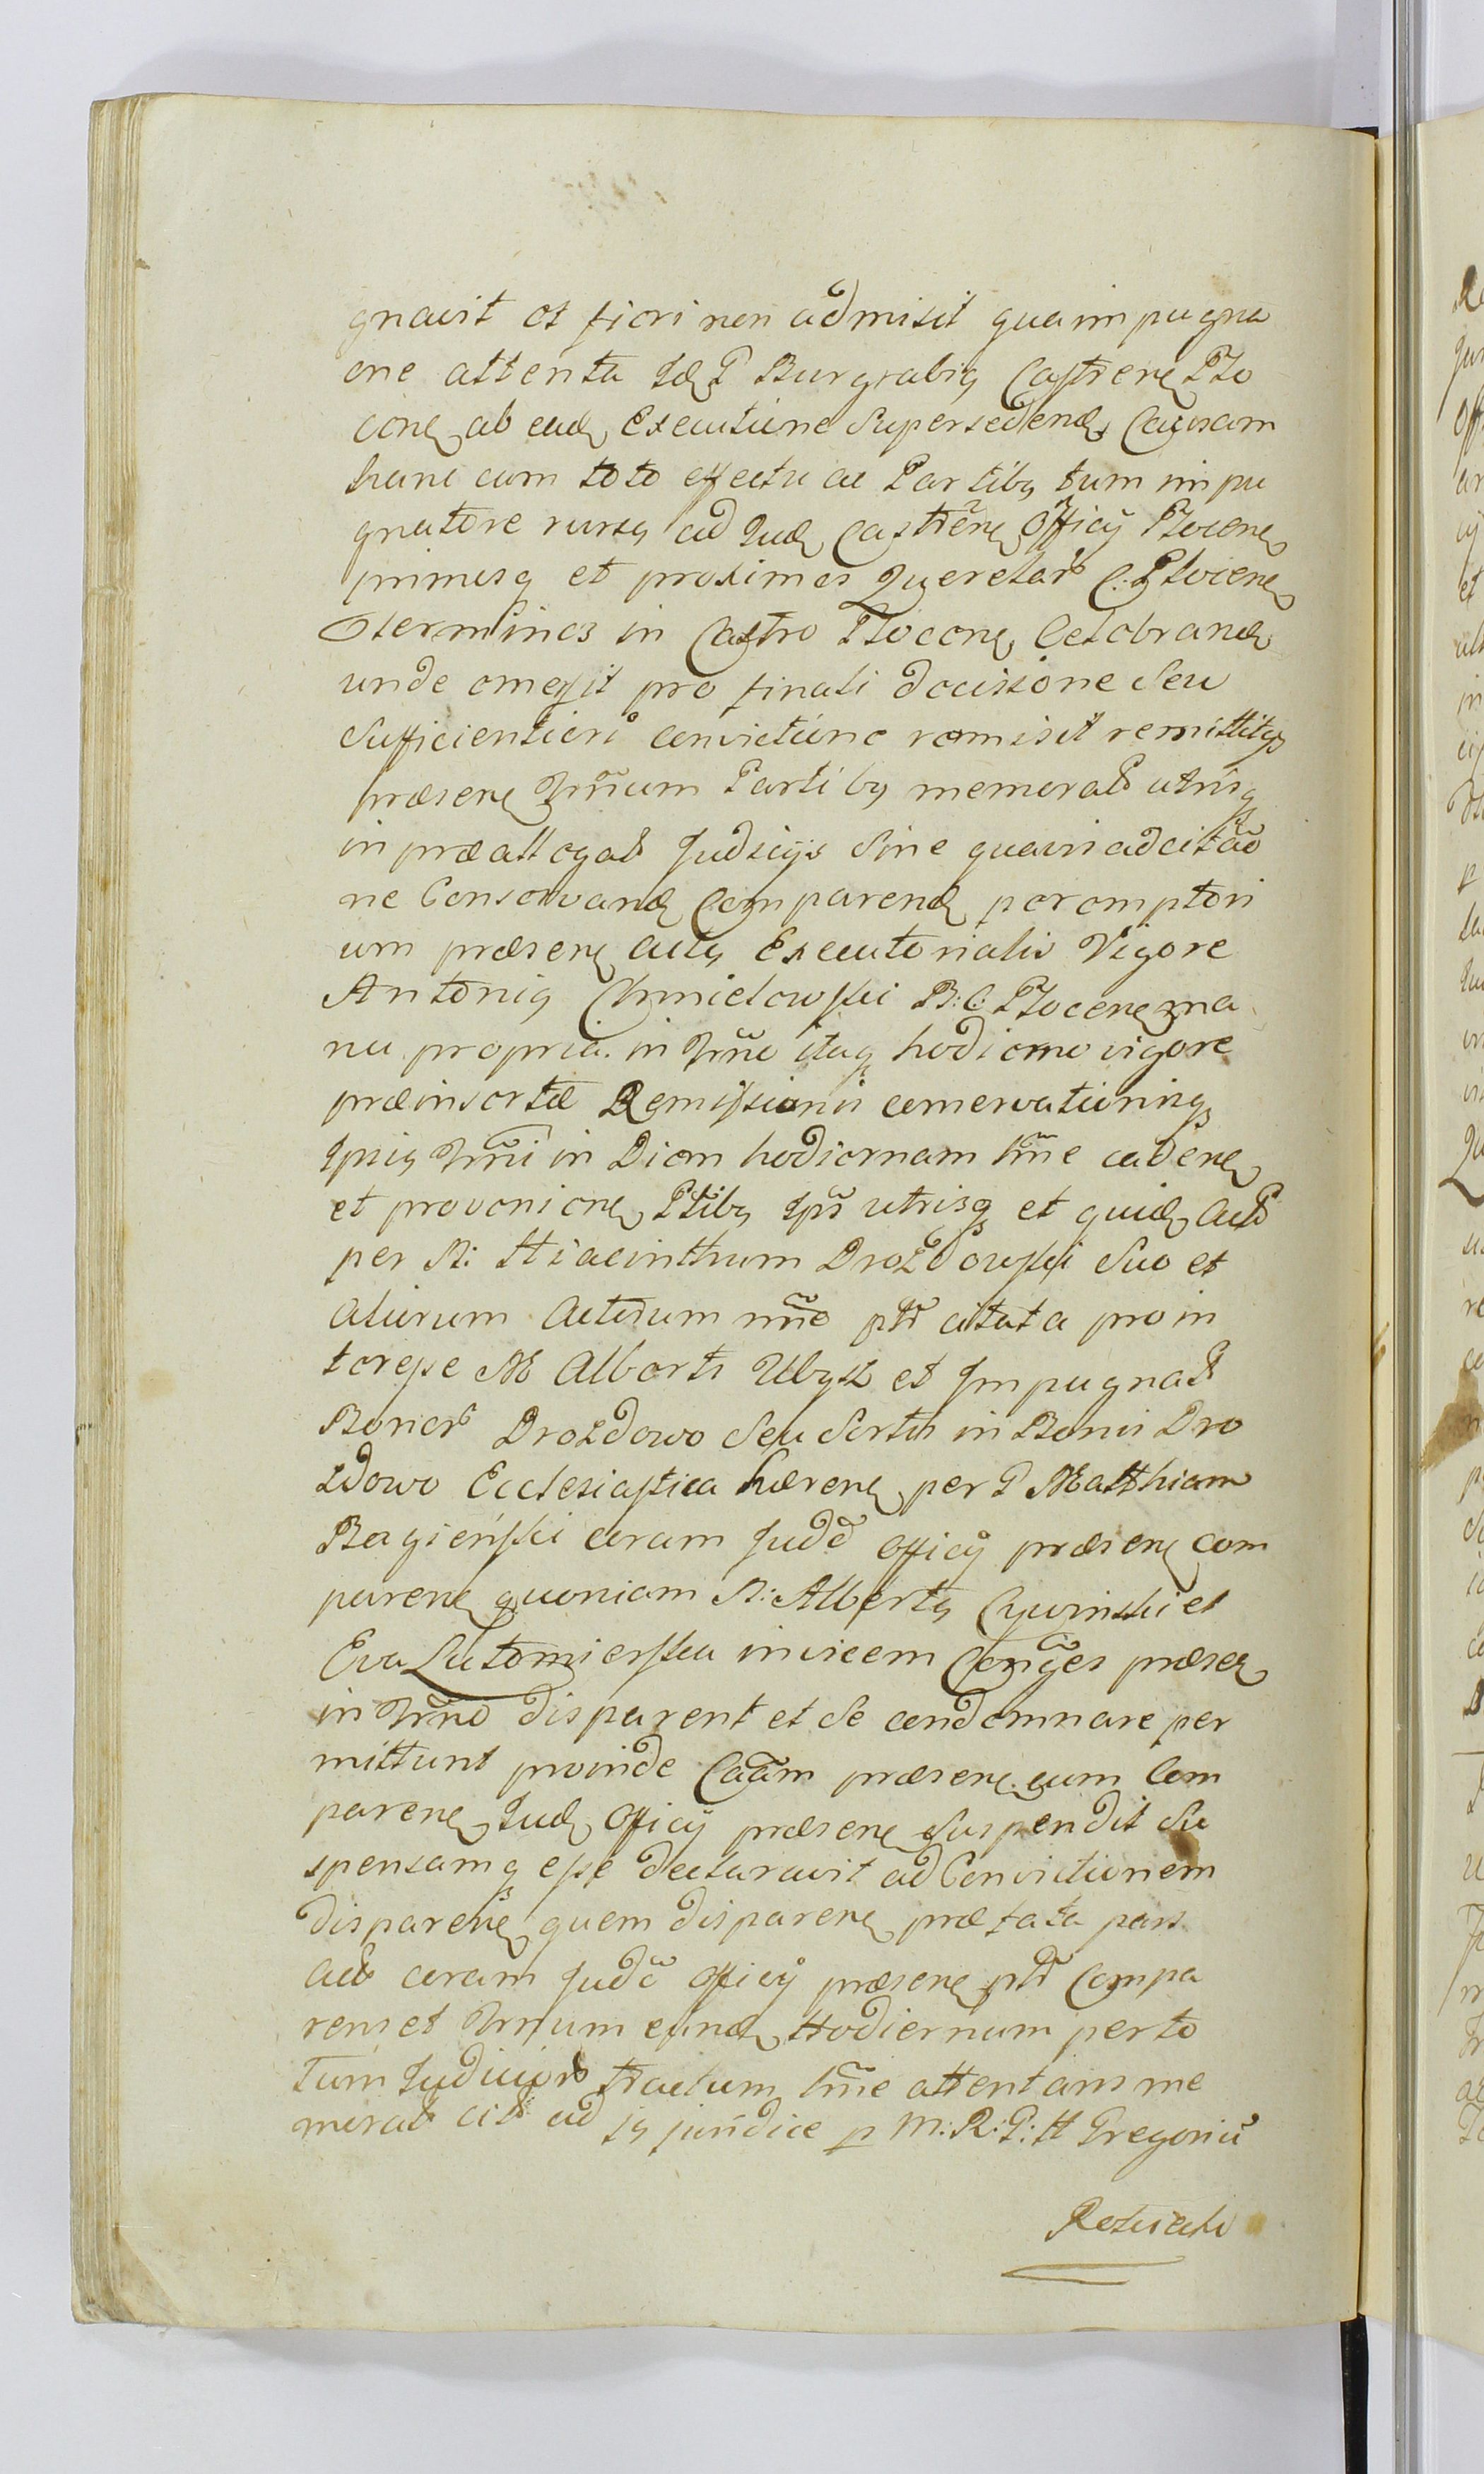 gnavit et fieri non admisit qua impugna
one attenta Idē P Burgrabiq Castrenē Plo
cenē ab eadē Executione Supersedenđ Causam
hanc cum toto effectu ac Partibq tum impu
gnatore rursq ad Judē Castrēnē Officÿ Plocenē
primosq et proximos Querelarō C: Plocenē
Terminos in Castro Plocenē Celebranđ
unde emersit pro finali decissione Seu
Sufficientiori convictione remisit remittitq
præsenē Trñum Partibq memorat utrisq
in præallegat Judicÿs Sine quavis adcitão
ne Conservanđ Comparenđ peremptori
um præsenē actq Executorialis Vigore
Antoniq Chmielowski B: C: Plocenē ma
nu propria. in Trño itaq hodierno vigore
præinsertæ Remissionis conservationisq
Ipsiq Trñi in Diem hodiernam lrñe cadenē
et provenienē Ptibq Ipš utrisq et quidē Act
per N: Hiacinthum Drozdowski Suo et
aliorum Actorum nñe ptt citata pro in
teresse M Alberti Ubysz et Impugnat
Bonorō Drozdowo Seu Sortis in Bonis Dro
zdowo Ecclesiastica hærenē per P Matthiam
Bagieński coram Judō officÿ præsenē com
parenē quoniam N: Albertq Cywinski et
Eva Lutomierska invicem Conĩges præsenē
in Trño disparent et Se condemnare per
mittunt proinde Caãm præsenē cum Com
parenē Judē Officÿ præsenē Suspendit Su
spensamq esse declaravit ad Convictionem
disparenē quem disparenē præfata pars
act coram Judō officÿ præsenē ptt Compa
rens et Trñum eundē Hodiernum per to
tum Judiciorō tractum lrñe attentans me
morat cit ad jq juridice p M: R: P: H Gregoriũ